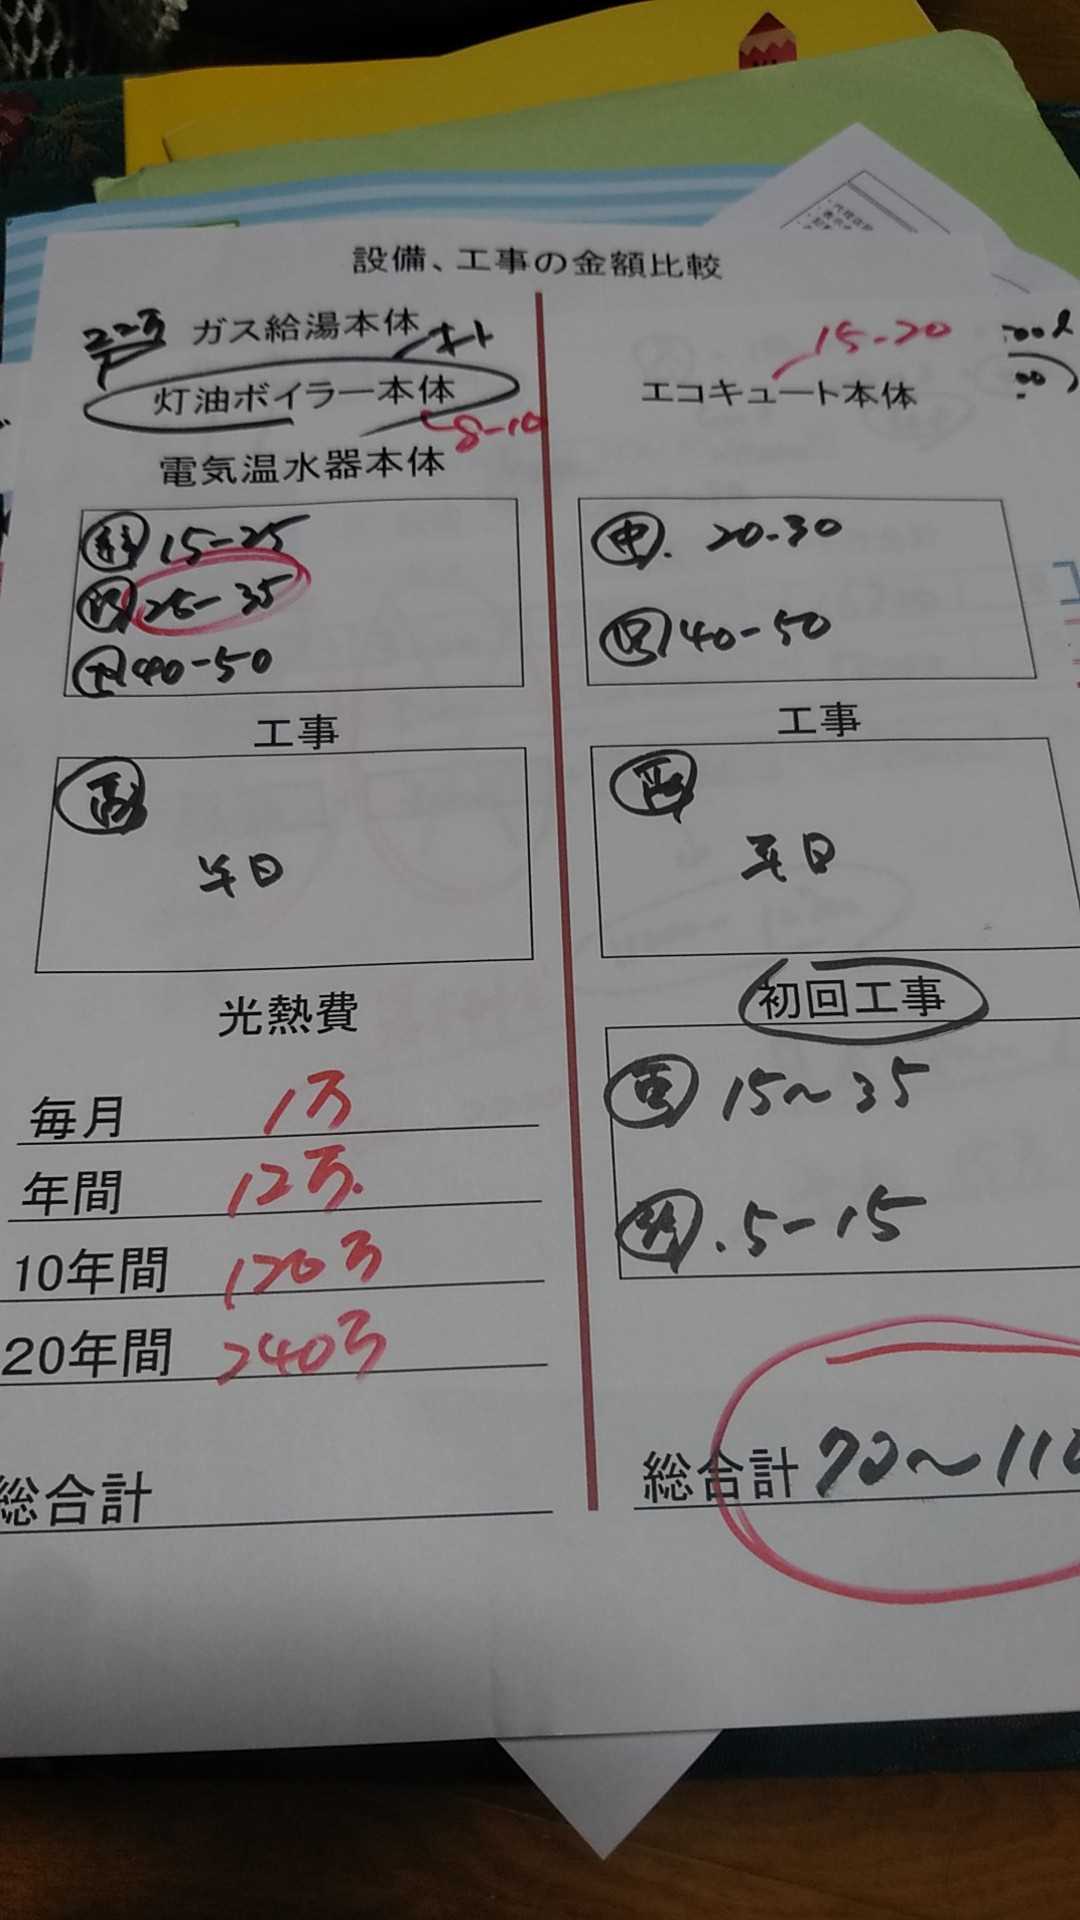 設備、工事の金額比較
22万 ガス給湯本体
灯油ボイラー本体
8-10
電気温水器本体
15-25
25-35
40-50
工事
半日
光熱費
毎月 1万
年間 12万.
10年間 120万
20年間 240万
総合計
15-20
エコキュート本体
中. 20-30
40-50
工事
半日
初回工事
15~35
.5-15
総合計 70~110